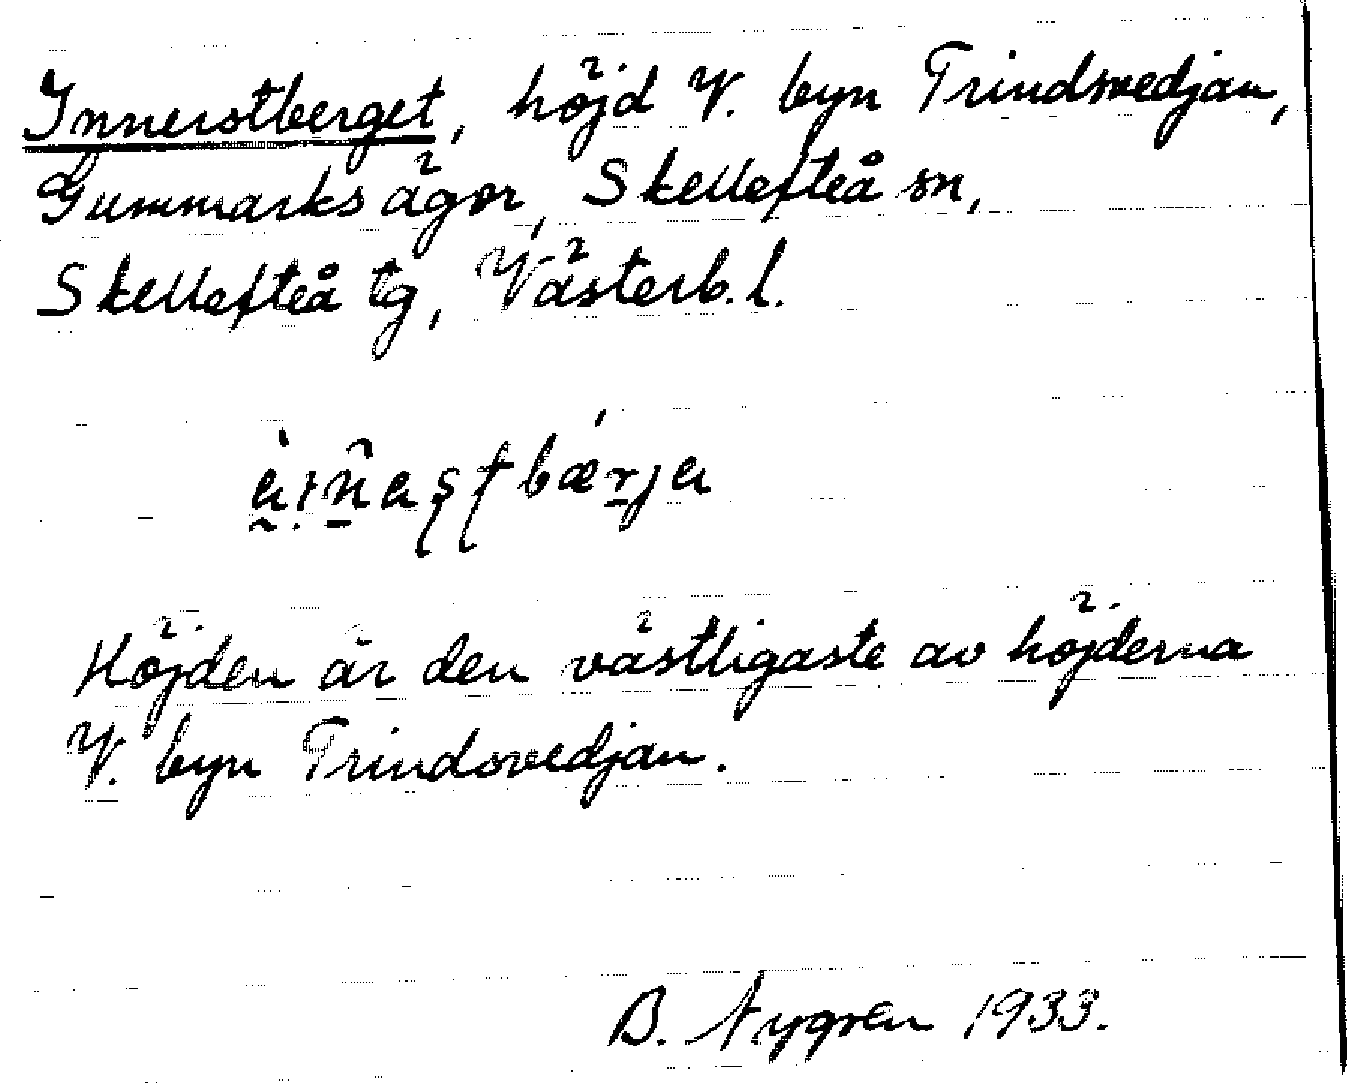 Innerstberget, höjd V. byn Trindsvedjan,
Gummarks ägor, Skellefteå sn,
Skellefteå tg, Västerb. l.
Höjden är den västligaste av höjderna
V. byn Trindsvedjan.
B. Nygren 1933.